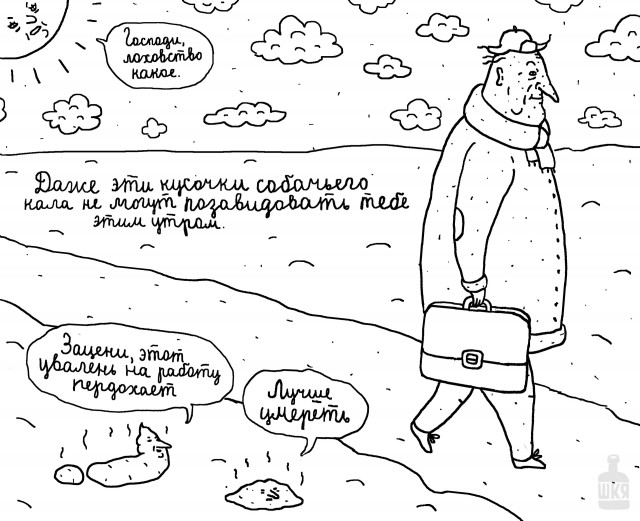 Господи,
лоховство
какое.
Даже эти кусочки собачьего
кала не могут позавидовать тебе
этим утром.
Зацени, этот
увалень на работу
пердохает
Лучше
умереть
ШКЯ